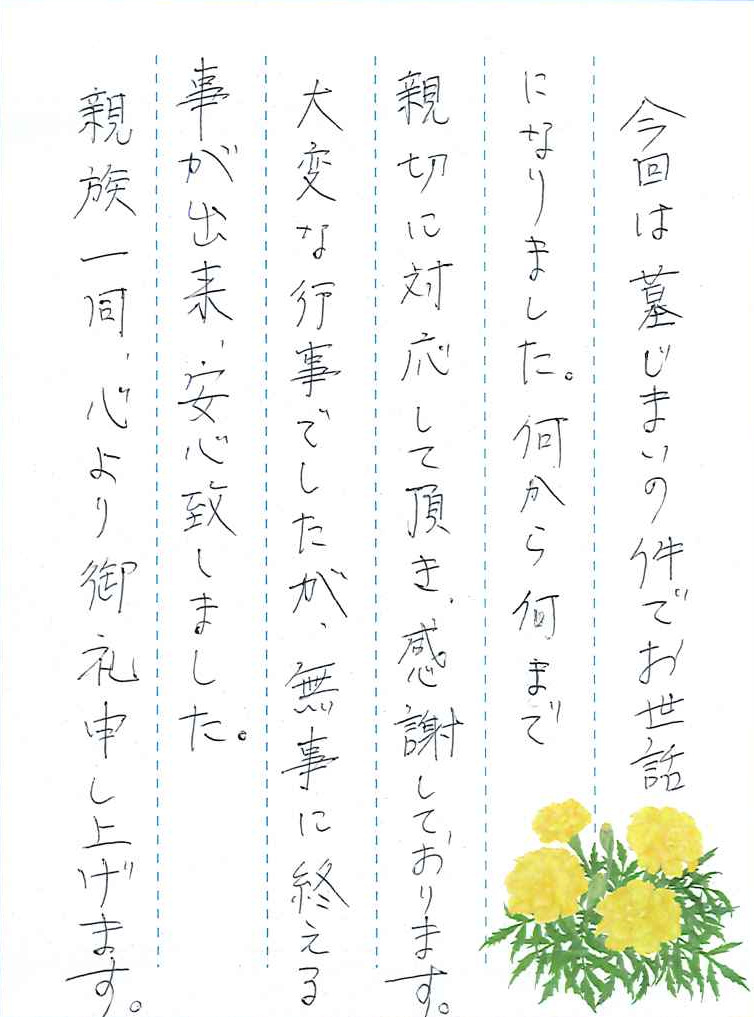 今回は墓じまいの件でお世話
になりました。何から何まで
親切に対応して頂き、感謝しております。
大変な行事でしたが、無事に終える
事が出来、安心致しました。
親族一同、心より御礼申し上げます。